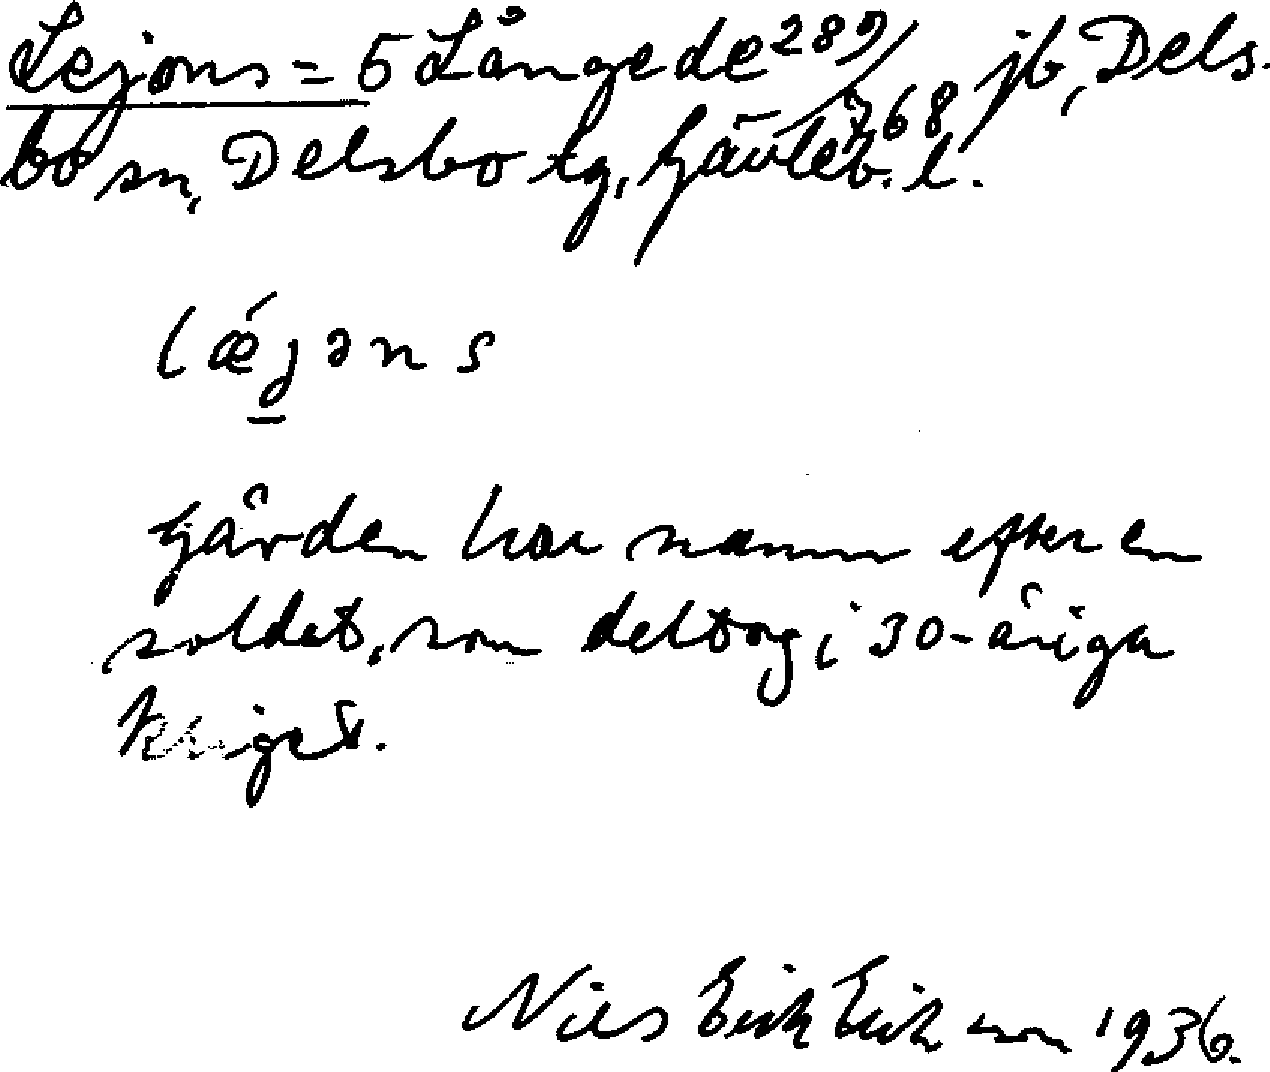 Lejons = 5 Långede 289/768 jb, Dels-
bo sn, Delsbo tg, Gävleb. l.
lǽjəns
Gården har namn efter en
soldat, som deltog i 30-åriga
kriget.
Nils Erik Erikson 1936.